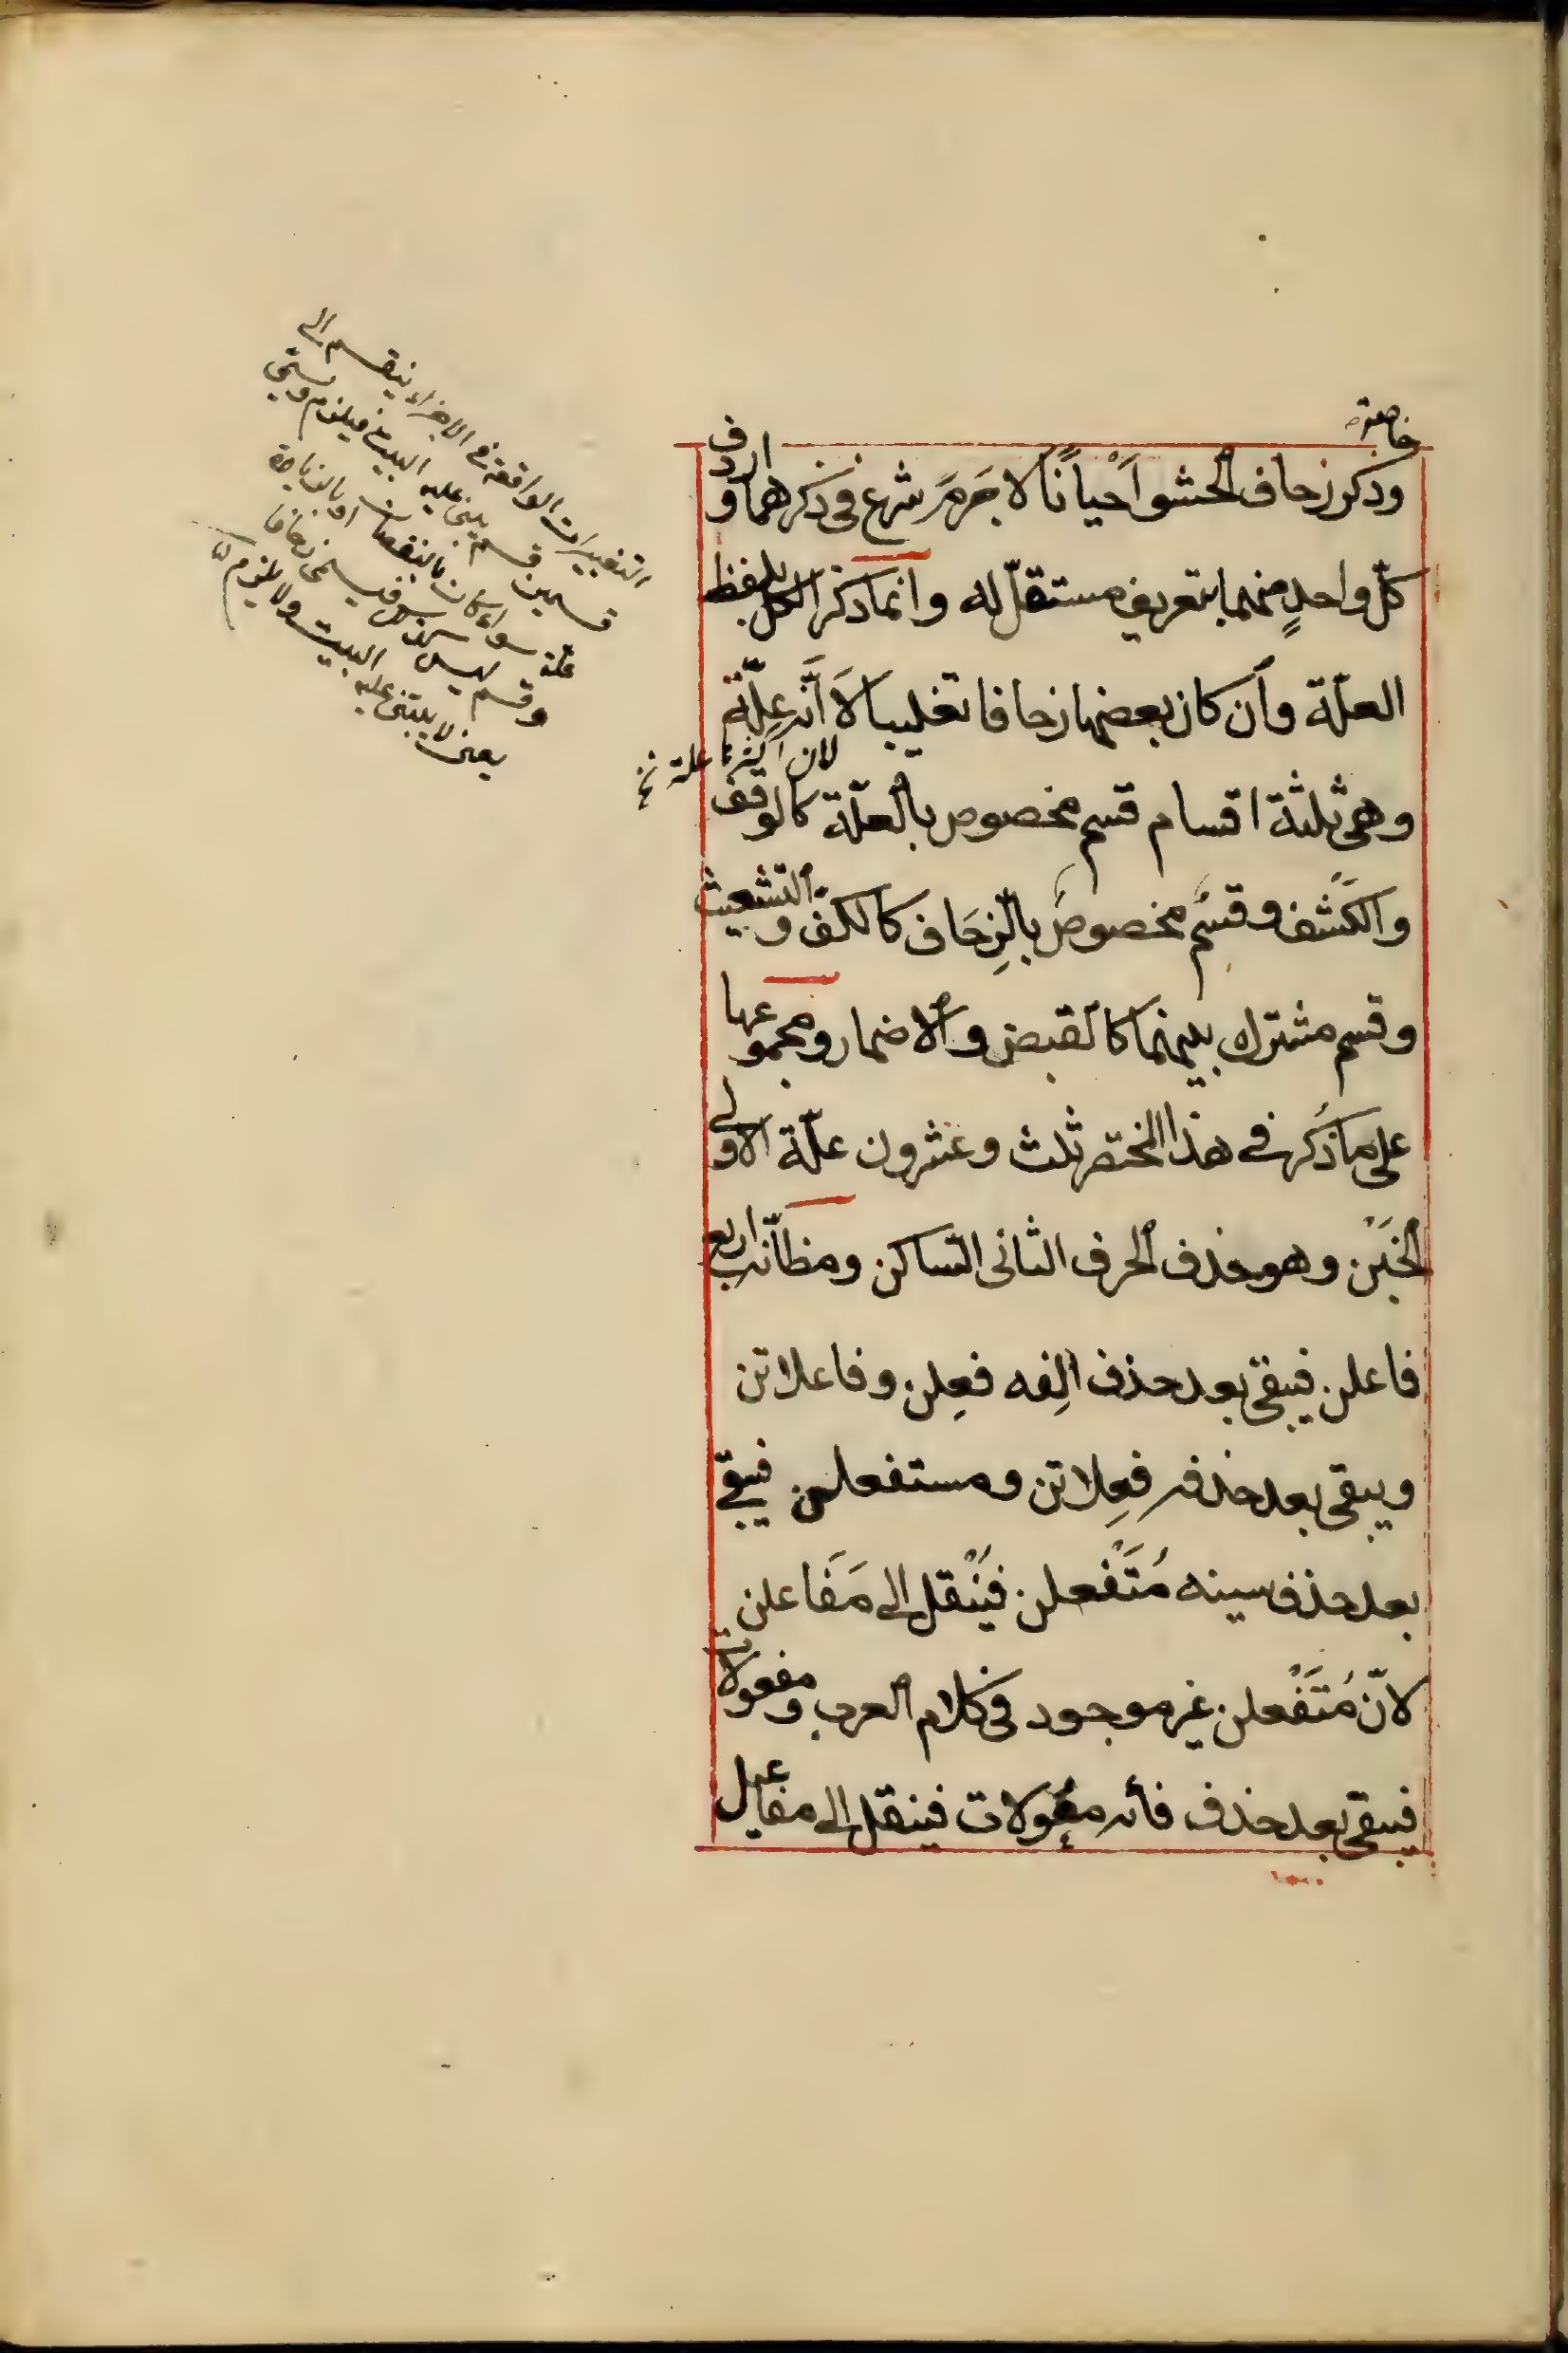 خاصة
وذكر زحاف الحشو اَحْيانًا لا جَرَمَ شرع فى ذكرهما واردف
كلّ واحدٍ منهما بتعريف مستقلّ له وانما ذكر الكل بلفظ
العلّة وان كان بعضها زحافا تغليبا لاَ اَنَّه عِلّة
لان اكثرها علة نخ
وهى ثلثة اقسام قسم مخصوص بالعلّة كالوقف
والكَشْف وقسم مخصوص بالزِحَاف كالكفّ والتشعيث
وقسم مشترك بينهما كالقبض والاضمار ومجموعها
على ما ذُكر فى هذا المختصر ثلث وعشرون علّة الاولى
الخَبْن وهو حذف الحرف الثانى الساكن ومظانّه اربع
فاعلن فيبقى بعد حذف الِفه فعِلن وفاعلاتن
ويبقى بعد حذفه فعِلاتن ومستفعلن فيبقى
بعد حذف سينه مُتَفْعلن فيُنْقل الى مَفَاعلن
لانّ مُتَفْعلن غير موجود فى كلام العرب ومفعولات
فيبقى بعد حذف فأئه مَعُولات فينقل الى مفاعيل
التغييرات الواقعة فى الاجزاء ينقسم الى
قسمين قسم يبنى عليه البيت فيلزم ويسمى
علة سواء كان بالنقصان او بالزيادة
وقسم ليس كذلك فيسمى زحافا
يعنى لا يبتنى عليه البيت ولا يلزم